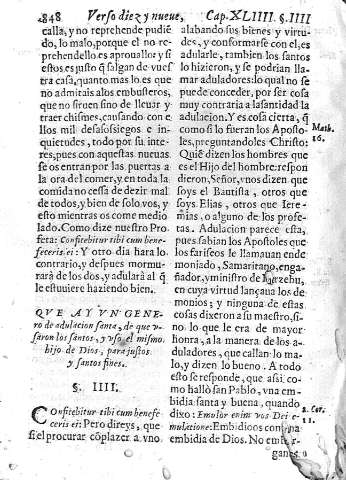 848 Verso diez y nueue, Cap. XLIIII. §. IIII
calla, y no reprehende pudiẽ
do, lo malo, porque el no re-
prehenderlo es aprouallo: y si
estos es justo q̃ salgan de vues
tra casa, quanto mas lo es que
no admitais alos embusteros,
que no siruen sino de lleuar y
traer chismes, causando con e
llos mil desasosiegos e in-
quietudes, todo por su inte-
res, pues con aquestas nueuas
se os entran por las puertas a
la ora del comer, y en toda la
comida no cessa de dezir mal
de todos, y bien de solo vos, y
esto mientras os come medio
lado. Como dize nuestro Pro
feta: Confitebitur tibi cum bene-
feceris ei: Y otro dia hara lo
contrario, y despues mormu-
rarà de los dos, y adularà al q̃
le estuuiere haziendo bien.
QVE AY VN GENE
ro de adulacion santa, de que v-
saron los santos, y vso el mismo
hijo de Dios, para justos
y santos fines.
§. IIII.
Confitebitur tibi cum benefe
ceris ei: Pero direys, que
si el procurar cõplazer a vno
alabando sus bienes y virtu-
des, y conformarse con el, es
adularle, tambien los santos
lo hizieron, y se podrian lla-
mar aduladores: lo qual no se
puede conceder, por ser cosa
muy contraria a la santidad la
adulacion. Y es cosa cierta, q̃
como si lo fueran los Aposto-
les, preguntandoles Christo:
Math.
16.
Quiẽ dizen los hombres que
es el Hijo del hombre: respon
dieron, Señor, vnos dizen que
soys el Bautista, otros que
soys Elias, otros que Iere-
mias, o alguno de los profe-
tas. Adulacion parece esta,
pues sabian los Apostoles que
los fariseos le llamauan ende
moniado, Samaritano, enga-
ñador, y ministro de
en cuya virtud lançaua los de
monios; y ninguna de estas
cosas dixeron a su maestro, si-
no lo que le era de mayor
honra, a la manera de los a-
duladores, que callan lo ma-
lo, y dizen lo bueno. A todo
esto se responde, que assi, co-
mo hallò san Pablo, vna em
bidia santa y buena, quando
dixo: Emulor enim vos Dei e-
2. Cor.
11.
mulatione: Embidioos con vna
embidia de Dios. No embar-
gan-